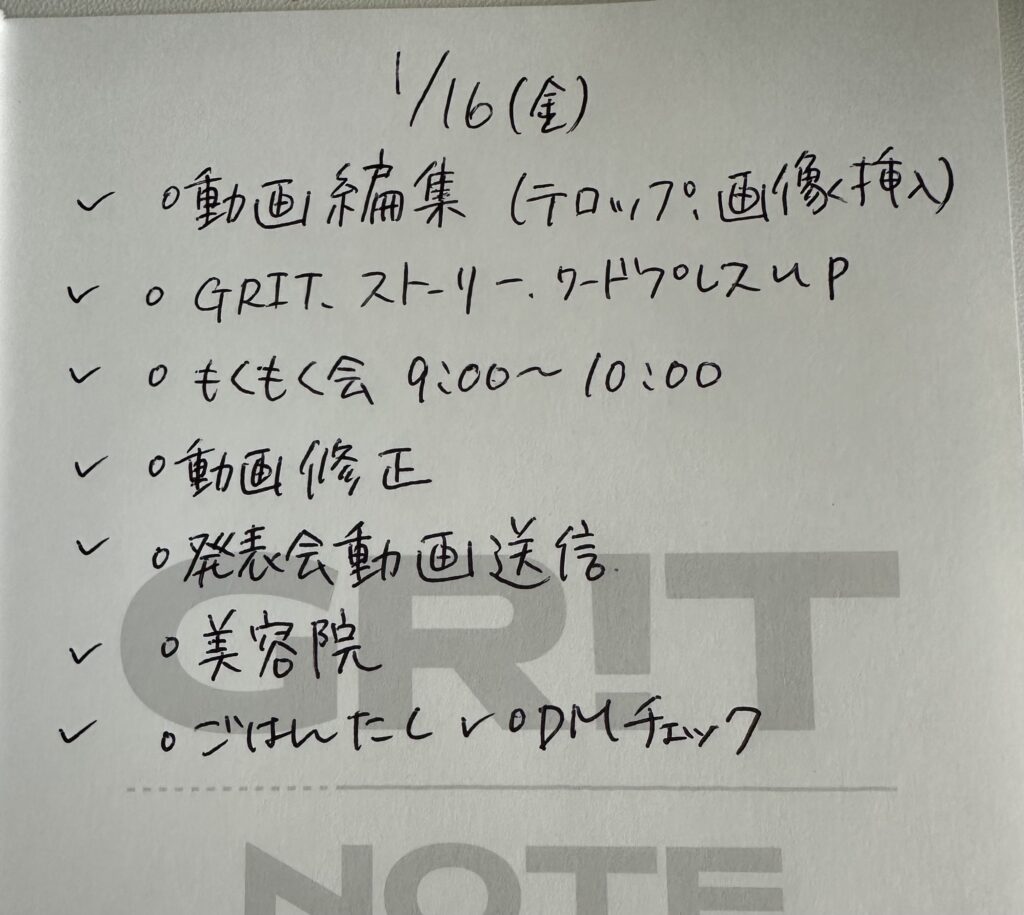 1/16(金)
✓ ○動画編集(テロップ、画像挿入)
✓ ○GRIT、ストーリー、ワードプレスup
✓ ○もくもく会 9:00〜10:00
✓ ○動画修正
✓ ○発表会動画送信
✓ ○美容院
✓ ○ごはんたく ✓○DMチェック
GRIT
NOTE